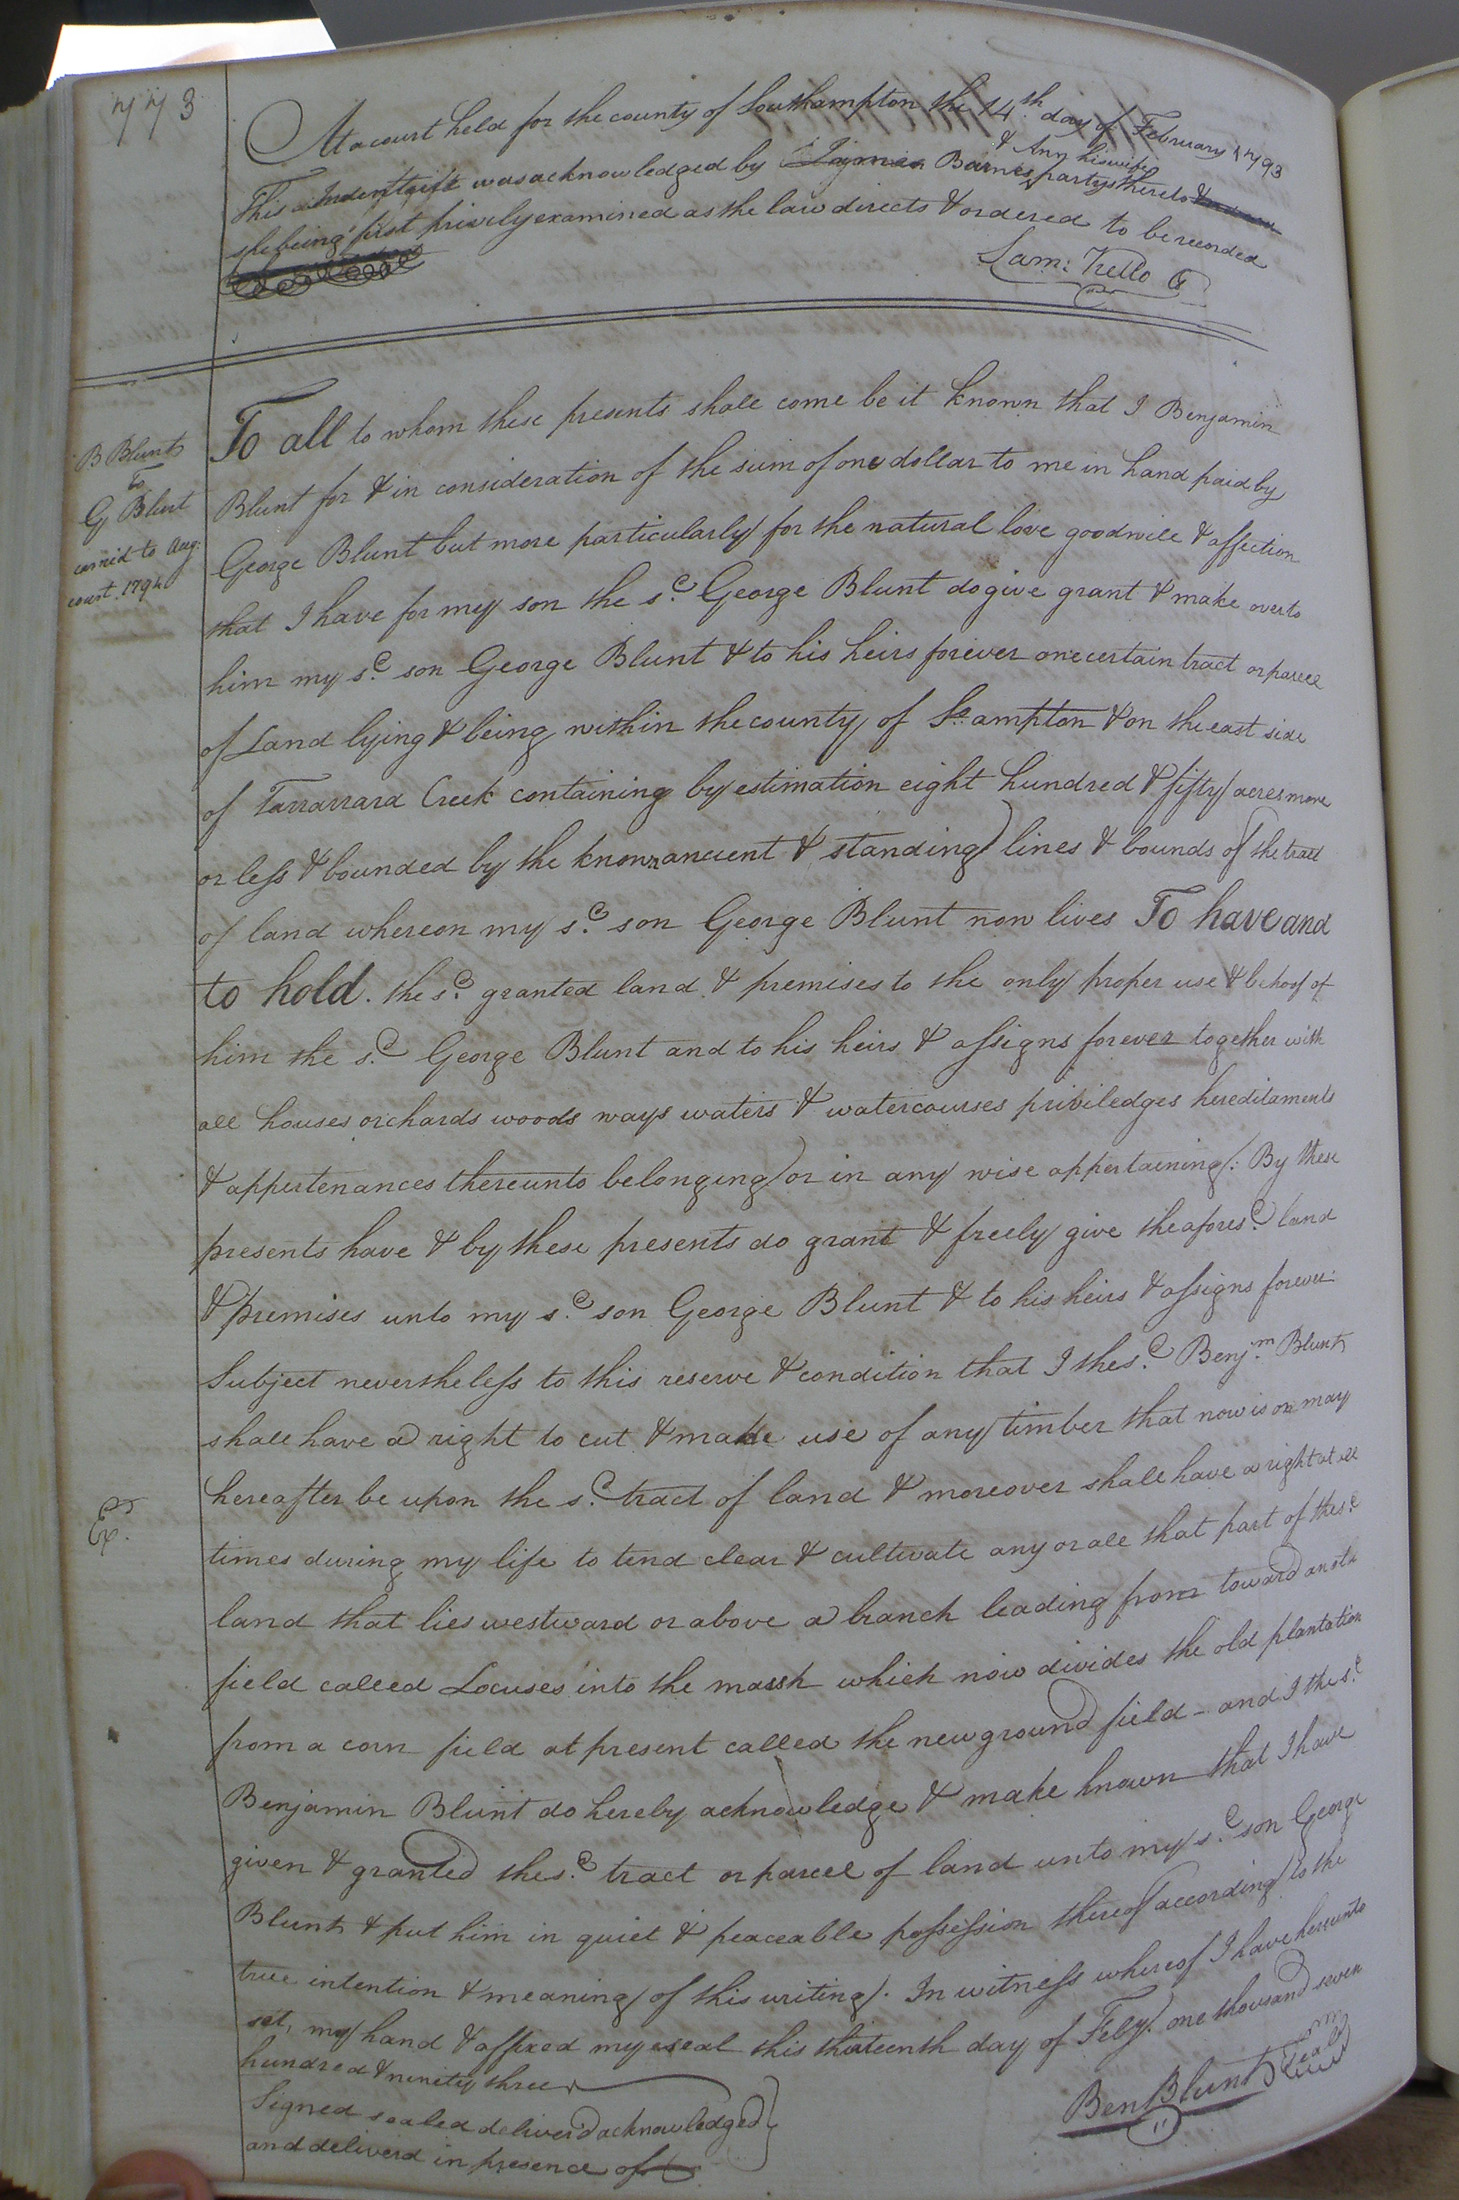 773
At a court held for the county of Southampton the 14th day of February 1793
& Ann his wife
This Indenture was acknowledged by James Barnes partys thereto
she being first privily examined as the law directs & ordered to be recorded
Sam: Kello C
B Blunt
To
G Blunt
carried to Aug:
court. 1794
To all to whom these presents shall come be it known that I Benjamin
Blunt for & in consideration of the sum of one dollar to me in hand paid by
George Blunt but more particularly for the natural love goodwill & affection
that I have for my son the sd. George Blunt do give grant & make over to
him my sd. son George Blunt & to his heirs forever one certain tract or parcel
of Land lying & being within the county of So.ampton & on the east side
of Tarrarrara Creek containing by estimation eight hundred & fifty acres more
or less & bounded by the known ancient & standing lines & bounds of the tract
of land whereon my sd. son George Blunt now lives To have and
to hold. the sd. granted land & premises to the only proper use & behoof of
him the sd. George Blunt and to his heirs & assigns forever together with
all houses orchards woods ways waters & watercourses priviledges hereditaments
& appertenances thereunto belonging or in any wise appertaining: By these
presents have & by these presents do grant & freely give the aforesd. land
& premises unto my sd. son George Blunt & to his heirs & assigns forever.
Subject nevertheless to this reserve & condition that I the sd. Benjm. Blunt
shall have a right to cut & make use of any timber that now is or may
hereafter be upon the sd. tract of land & moreover shall have a right at all
Ex.
times during my life to tend clear & cultivate any or all that part of the sd.
land that lies westward or above a branch leading from toward an old
field called Locuses into the marsh which now divides the old plantation
from a corn field at present called the new ground field - and I the sd.
Benjamin Blunt do hereby acknowledge & make known that I have
given & granted the sd. tract or parcel of land unto my sd. son George
Blunt & put him in quiet & peaceable possession thereof according to the
true intention & meaning of this writing. In witness whereof I have hereunto
set, my hand & affixed my seal this thirteenth day of Feby. one thousand seven
hundred & ninety three
Ben Blunt Seal
Signed sealed deliver'd acknowledged
and deliverd in presence of